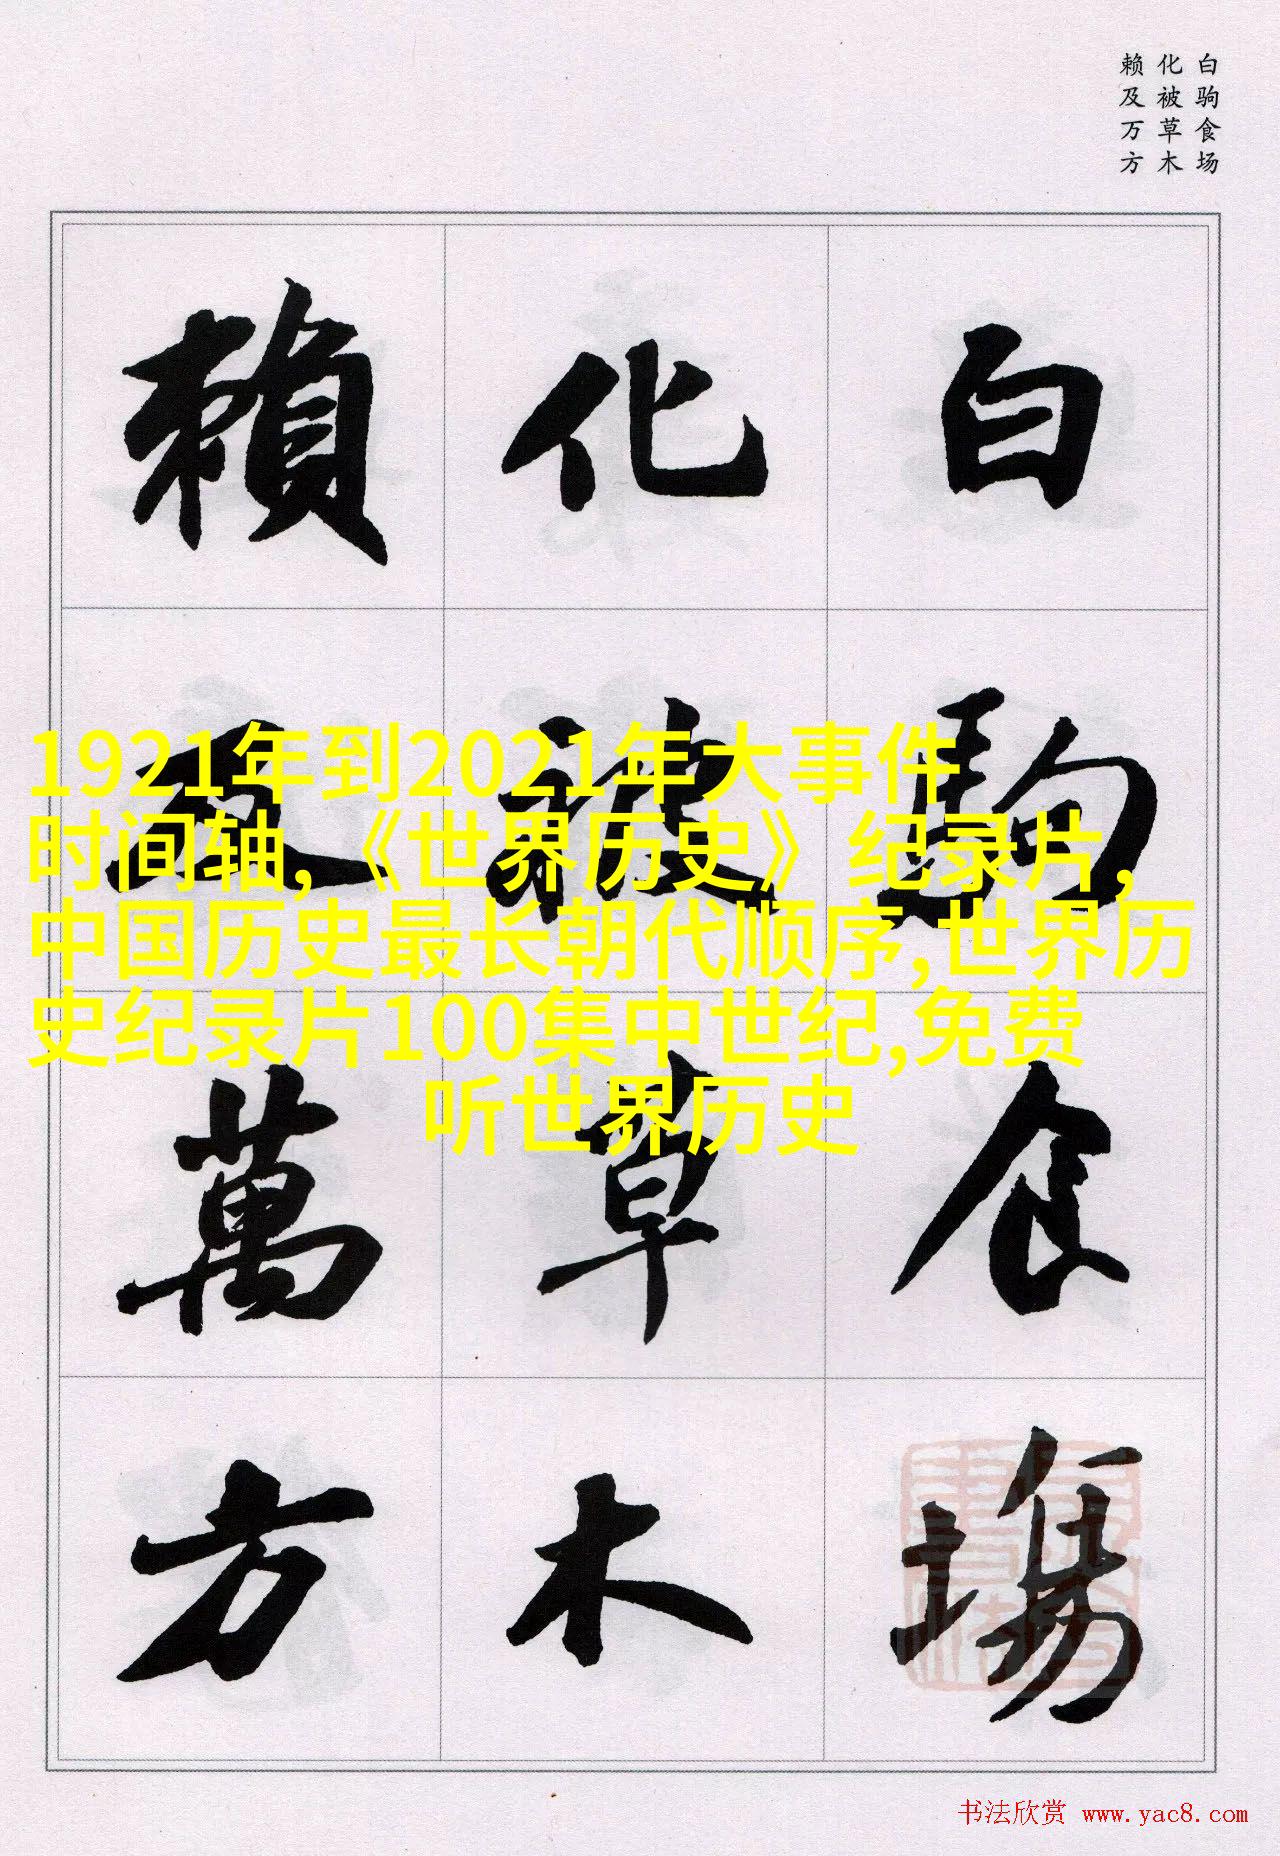 白驹食场
化被草木
赖及万方
白駒食場
化被草木
賴及萬方
1921年到2021年大事件
时间轴,《世界历史》纪录片,
中国历史最长朝代顺序,世界历
史纪录片100集中世纪,免费
听世界历史
书法欣赏 www.yac8.com